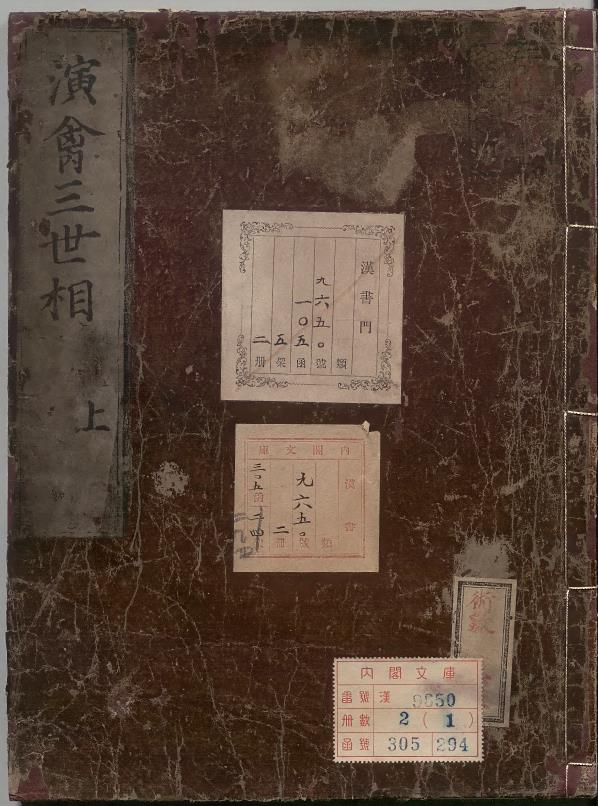 演禽三世相
上
漢書門
類
九六五〇號
一〇五函
五架
二册
内閣文庫
漢書
類
九六五〇號
二册
三〇五函
術
内閣文庫
番號 漢 9650
册數 2 (1)
函號 305 294